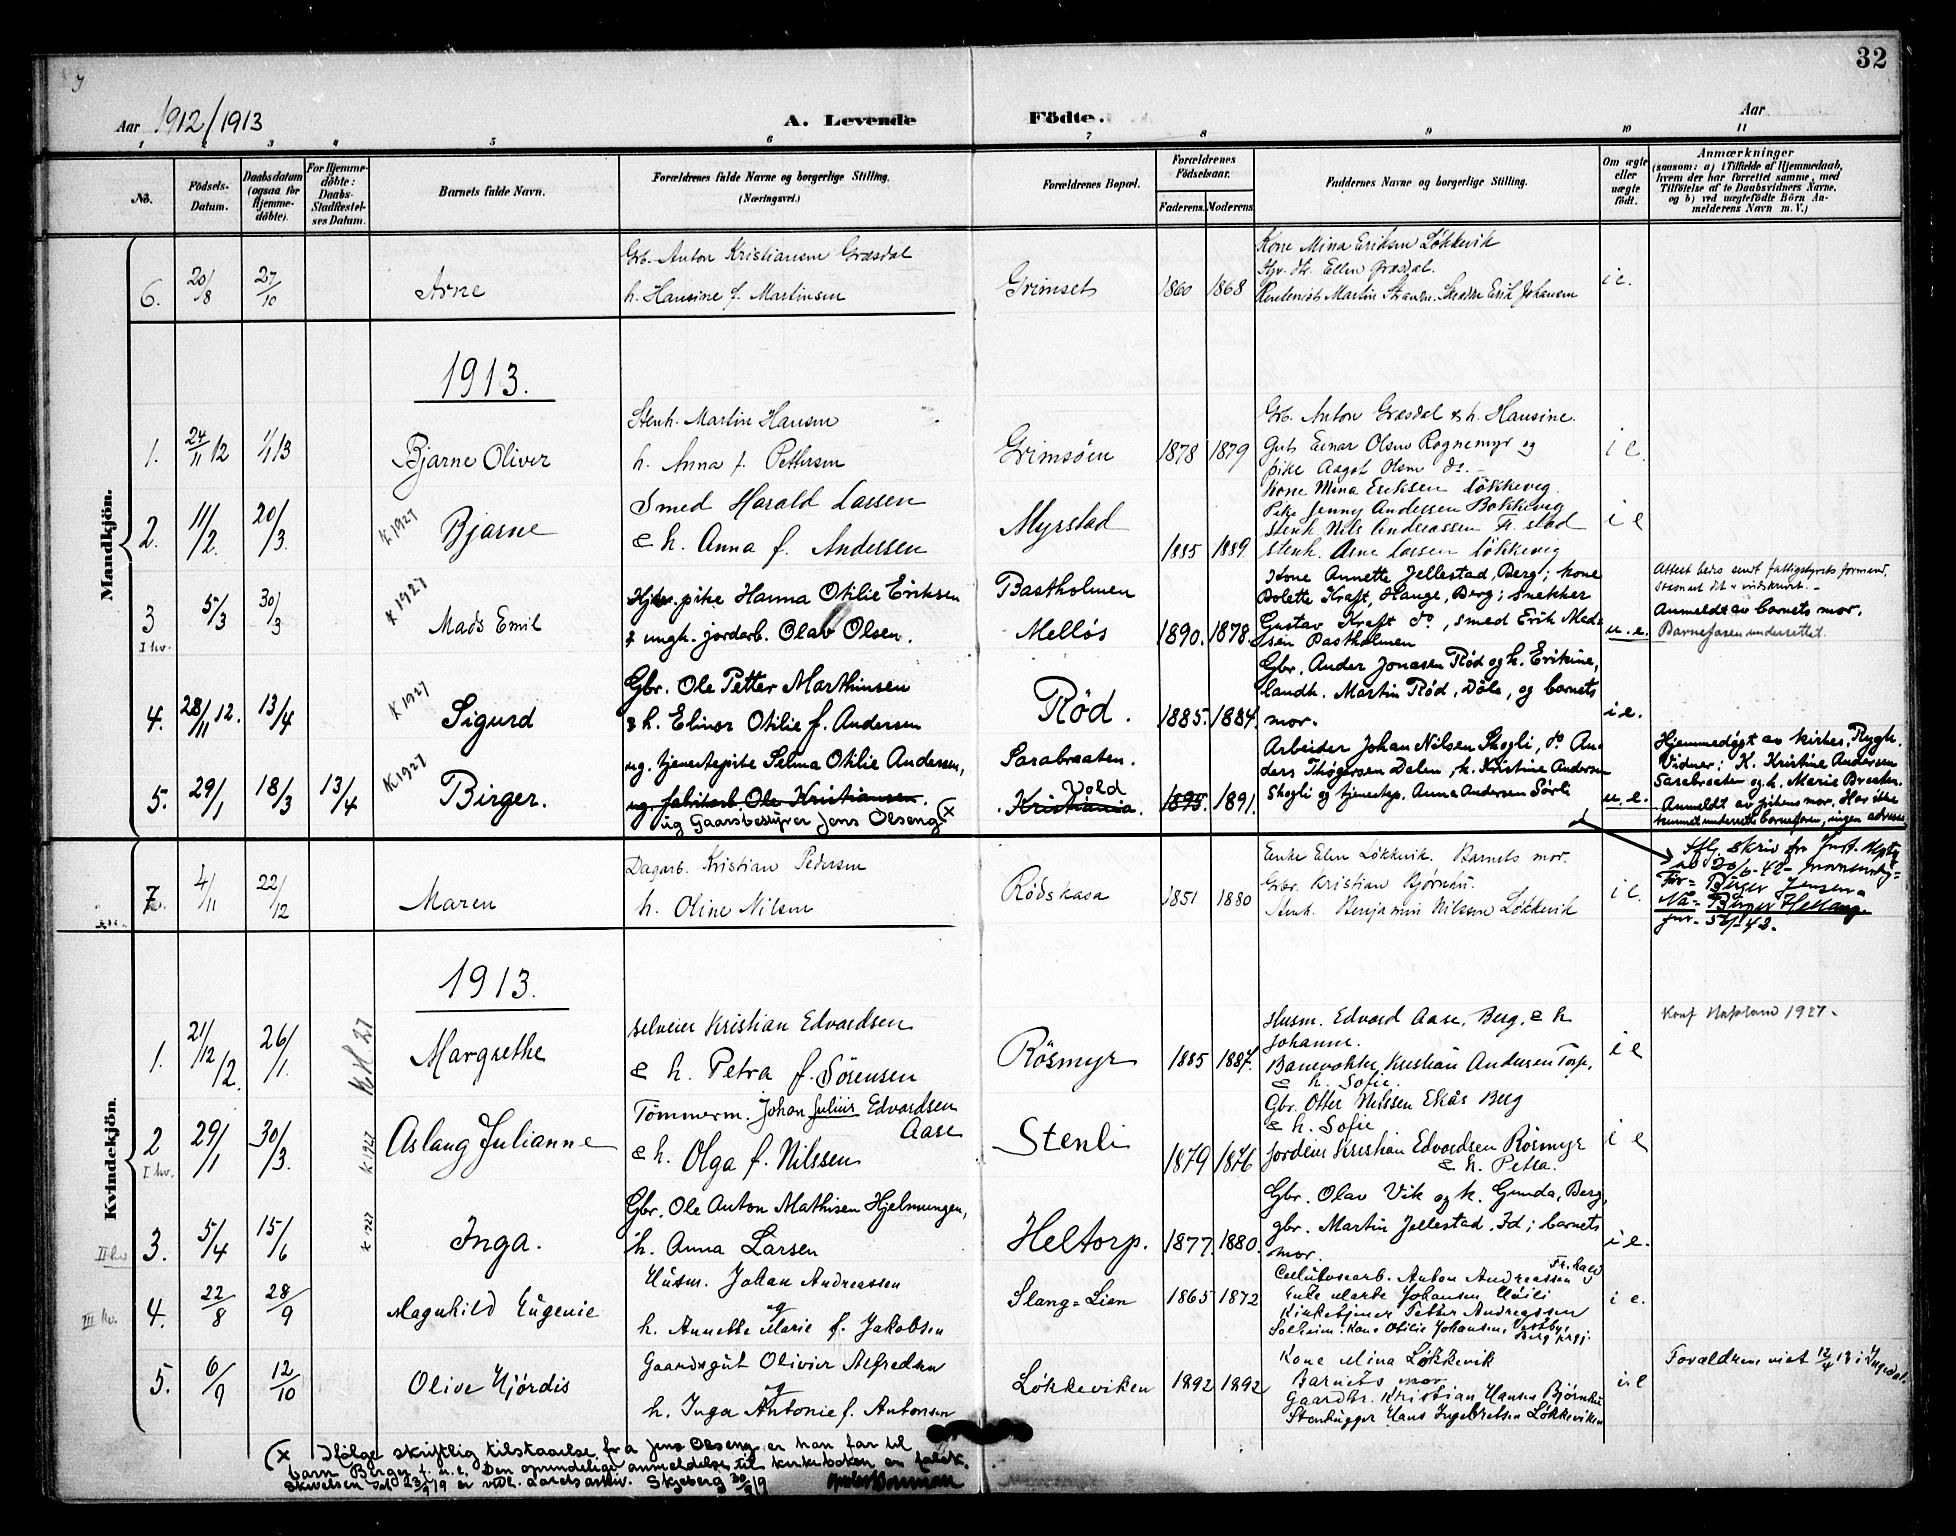 32
Aar 1912/1913
A. Levende
Födte.
Aar
1 2 3 4 5 6 7 8 9 10 11
No.
Födsels-
Datum.
Daabsdatum
(ogsaa for
Hjemme-
döbte).
For Hjemme-
döbte:
Daabs-
Stadfæstel-
ses Datum.
Barnets fulde Navn.
Forældrenes fulde Navne og borgerlige Stilling.
(Næringsvei.)
Forældrenes Bopæl.
Forældrenes
Födselsaar.
Faderens. Moderens.
Faddernes Navne og borgerlige Stilling.
Om ægte
eller
uægte
født.
Anmærkninger
(saasom: a) i Tilfælde af Hjemmedaab,
hvem der har forrettet samme, med
Tilföielse af to Daabsvidners Navne,
og b) ved uægtefödte Börn An-
melderens Navn m. V.)
Mandkjön.
6. 20/8 27/10 Arne
Grb. Anton Kristiansen Græsdal
h. Hansine f. Martinsen
Grimset 1860 1868
Kone Mina Eriksen Løkkevik
Ellen Græsdal.
Martin Erik Johansen
i e.
1913.
1. 24/11 12 1/1 13 Bjarne Oliver
Stenh. Martin Hansen
h. Anna f. Pettersen
Grimsøen 1878 1879
Grb. Anton Græsdal & h. Hansine.
Gut Einar Olsen Rognemyr og
pike Aagot Olsen ds.
i e.
2. 11/2. 20/3. K 1927 Bjarne
Smed Harald Lassen
& h. Anna f. Andersen
Myrstad 1885 1889
Kone Mina Eriksen Løkkevig
Pike Jenny Andersen Bakkevig
Stenh. Nils Andreassen Fr. stad
Stenh. Arne Lassen Løkkevig
i e
3 I hv. 5/3 30/3 K 1927 Mads Emil
pike Hanna Otilie Eriksen
& ungk. jordarb. Olav Olsen.
Bastholmen
Mellös 1890. 1878.
Kone Annette Jellestad, Berg; kone
Bolette Kraft, Hauge, Berg; snekker
Gustav Kraft do, smed Erik Mad-
sen Bastholmen
u. e.
Anmeldt av barnets mor.
Barnefaren underrettet.
4. 28/11 12. 13/4 K 1927 Sigurd
Gbr. Ole Petter Marthinsen
& h. Elinor Otilie f. Andersen
Rød. 1885. 1884.
Gbr. Ander Jonasen Rød og h. Erikine,
landh. Martin Rød, Døle, og barnets
mor.
i e.
5. 29/1 18/3 13/4 K 1927 Birger.
ug. tjenestepike Selma Otilie Andersen,
ug. fabrikarb. Ole Kristiansen.
ug Gaarsbestyrer Jens Olseng (x
Sarabraaten.
Vold
Kristiania. 1895. 1891.
Arbeider Johan Nilsen Skogli, do An-
ders Thøgersen Dalen, h. Kristine Andersen
Skogli og tjenestep. Anna Andersen Sørli
u. e.
Hjemmedøpt av kirkes. Rygh.
Vidner; K. Kristine Andersen
Sarabraaten og h. Marie Braaten.
Anmeldt av pikens mor. Har ikke
kunnet underrette barnefaren, ingen adresse
Iflg. skriv fra Just. dpt
av 20/6-42
Før = Birger Jensen
Nå = Birger
Kvindekjön.
7. 4/11 22/12 Maren
Dagarb. Kristian Pedersen
h. Oline Nilsen
Rødskasa 1851 1880
Enke Elen Løkkevik. Barnets mor.
Gbr. Kristian Bjørnhu.
Stenh. Benjamin Nilsen Løkkevik
i e.
1913.
1. 21/12 12. 26/1. Margrethe
Selveier Kristian Edvardsen
& h. Petra f. Sörensen
Rösmyr 1885 1887.
Husm. Edvard Aase, Berg, & h
Johanne.
Banevokter Kristian Andersen Torp,
& h. Sofie.
i e
Konf 1927.
2 I hv. 29/1 30/3. K 1927 Aslaug Julianne
Tömmerm. Johan Julius Edvardsen
Aase
& h. Olga f. Nilssen
Stenli 1879 1876
Gbr. Otter Nilssen Ekås Berg
& h. Sofie
Jordeier Kristian Edvardsen Rösmyr
& h. Petra.
i e
II hv 3. 5/4 15/6 K 1927 Inga.
Gbr. Ole Anton Mathisen Hjelmungen,
h. Anna Larsen
Heltorp. 1877 1880.
Gbr. Olav Vik og k. Gunda, Berg,
gbr. Martin Jellestad, Id; barnets
mor.
i e.
III hv. 4. 22/8 28/9 Magnhild Eugenie
Husm. Johan Andreassen
og
h. Annette Marie f. Jakobsen
Slang-Lien 1865 1872
Cellulosearb. Anton Andreassen Fr.hald
Enke Marte Johansen
Kirketjener Petter Andreassen
Solheim. Kone Otilie Johansen, Vestby,
i e.
5. 6/9 12/10 Olive Hjördis
Gaardsgut Olivier Alfredsen
og
h. Inga Antonie f. Antonsen
Løkkeviken 1892 1892
Kone Mina Løkkevik
Barnets mor
Gaardbr. Kristian Hansen Björnhu
Stenhugger Hans Ingebretsen Løkkeviken
i e
Forældrene viet 12/4 13 i Ingedal.
(x Ifølge skriftlig tilstaaelse fra Jens Olseng er han far til
barn Birger f. u. e. Den oprindelige anmeldelse til kirkeboken en falsk.
Skrivelsen dat 23/9 19 er vedl. aarets arkiv. Skjeberg 30/9 19